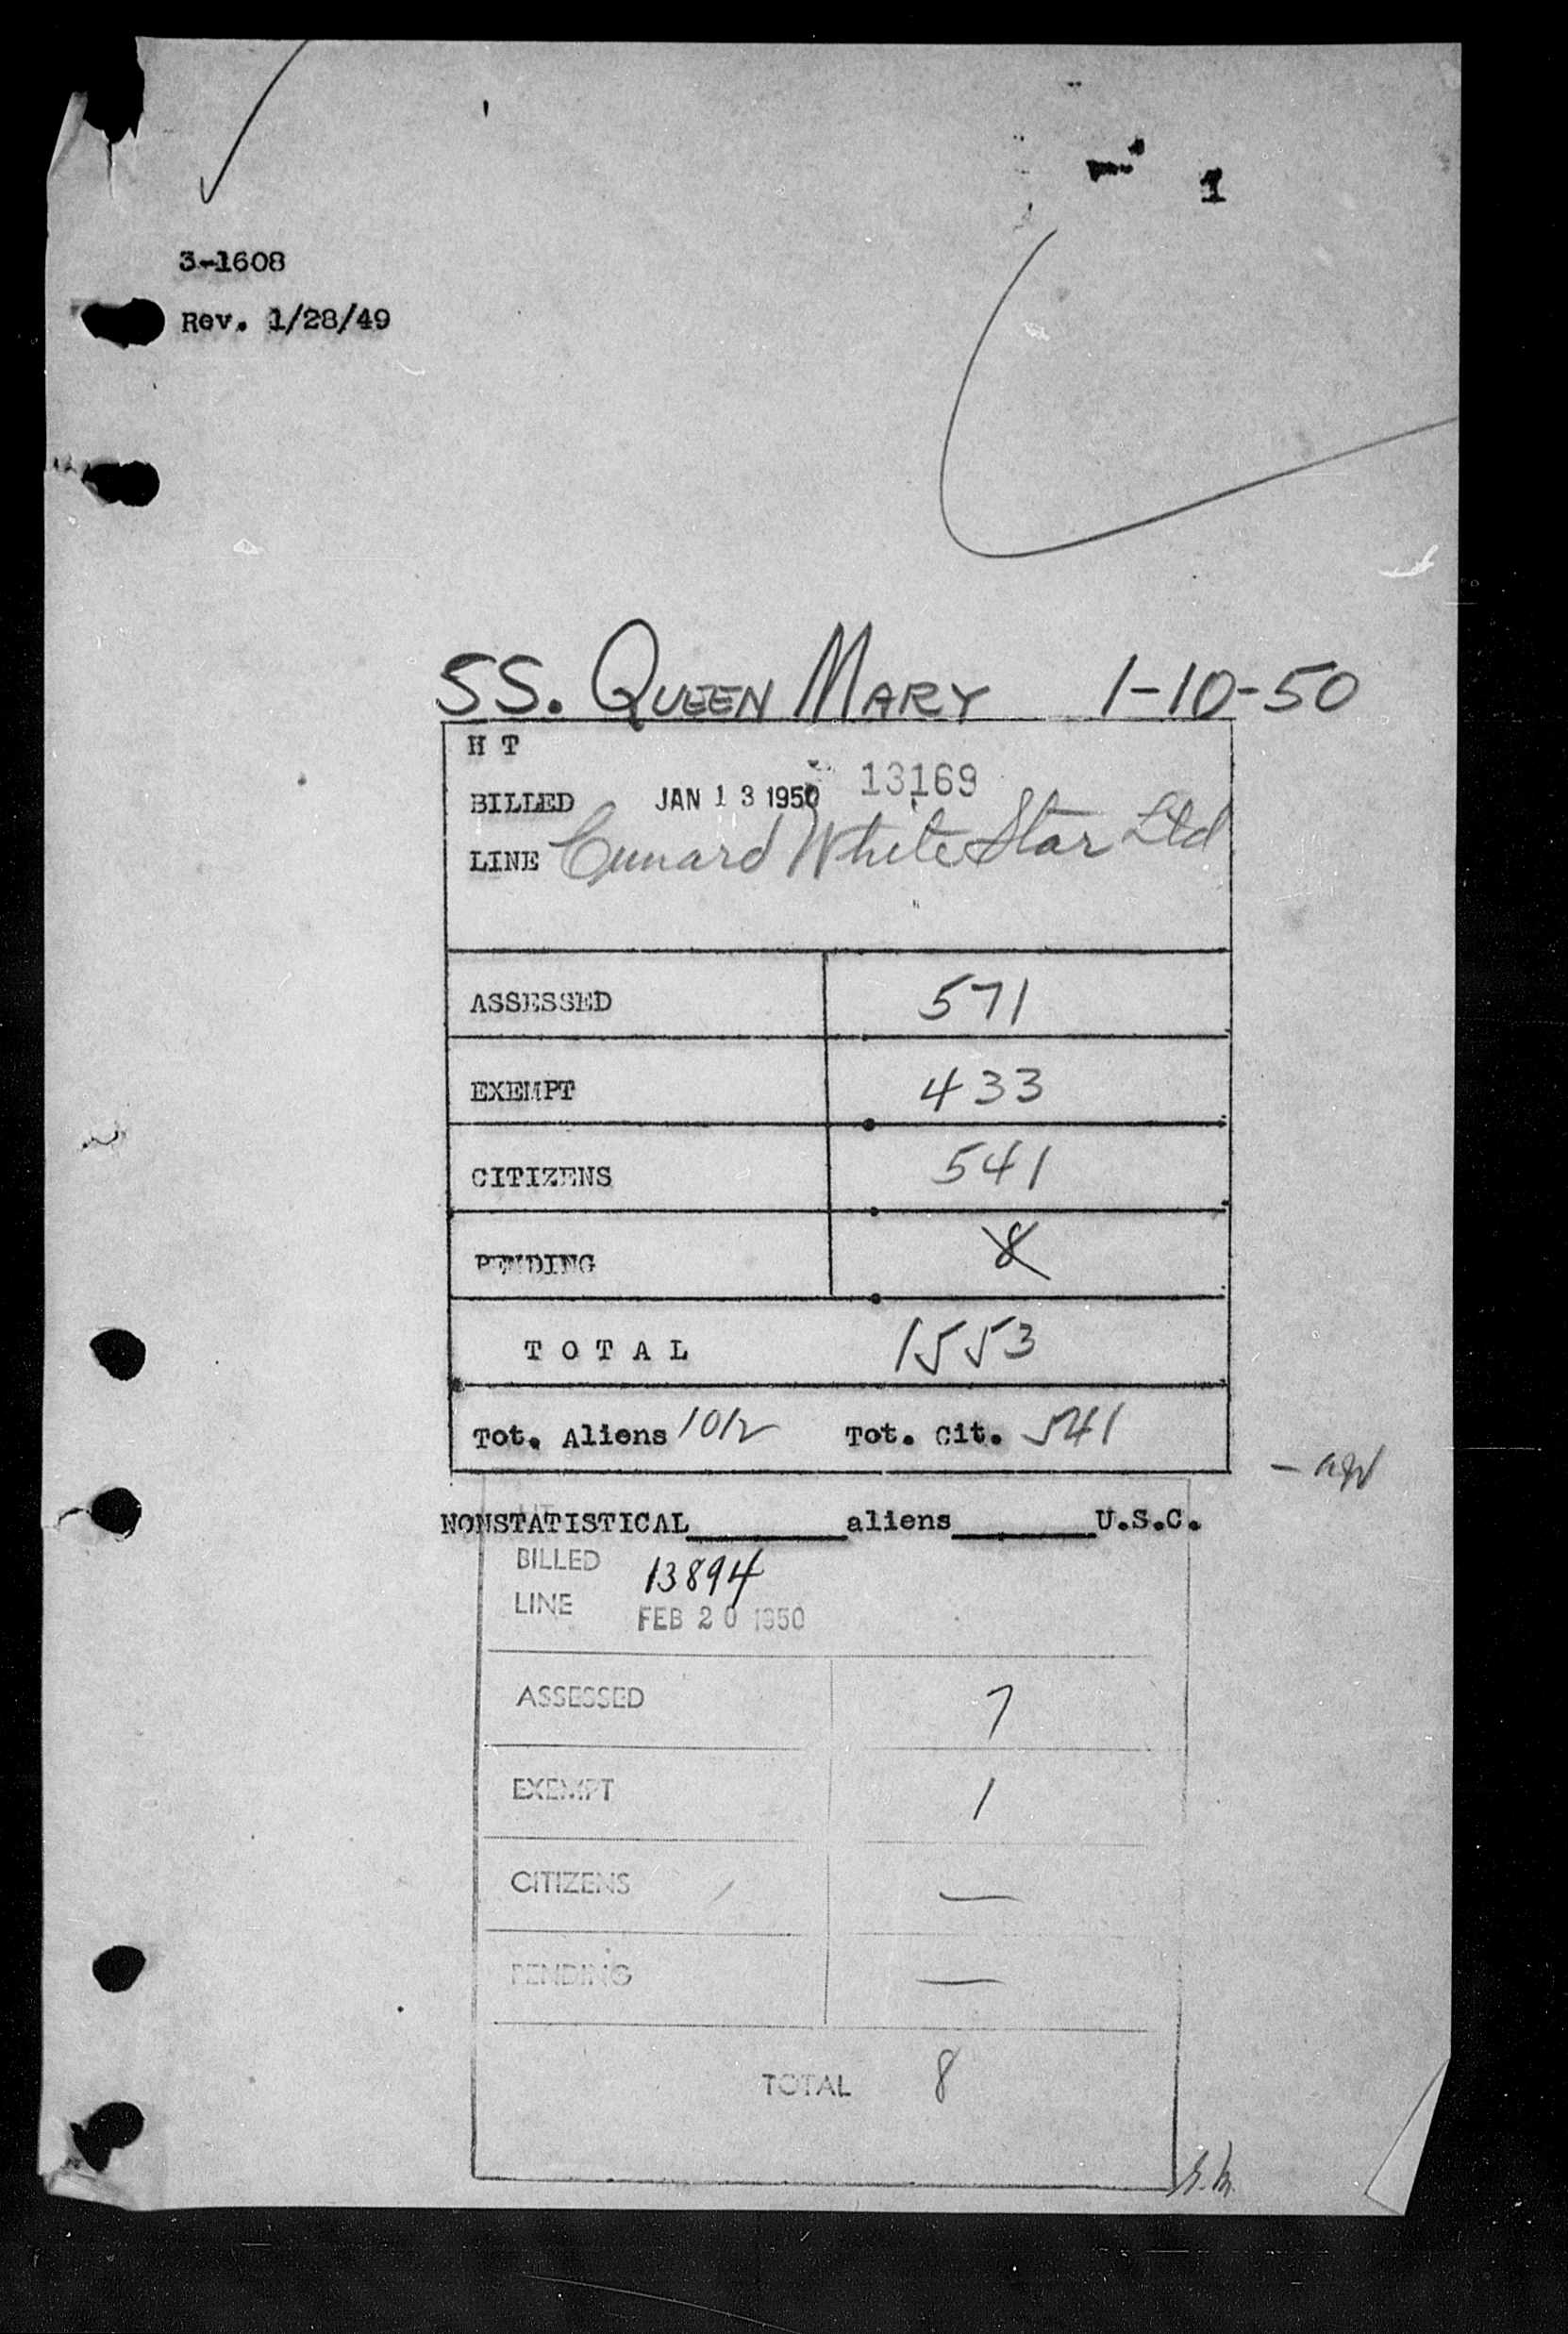 1
3-1608
Rev. 1/28/49
SS. QUEEN MARY 1-10-50
H T
BILLED JAN 13 1950 13169
LINE Cunard White Star Ltd
ASSESSED 571
EXEMPT 433
CITIZENS 541
PENDING 8
T O T A L 1553
Tot. Aliens 1012 Tot. Cit. 541
NONSTATISTICAL________aliens________U.S.C.
HT
BILLED 13894
LINE FEB 20 1950
ASSESSED 7
EXEMPT 1
CITIZENS —
PENDING —
TOTAL 8